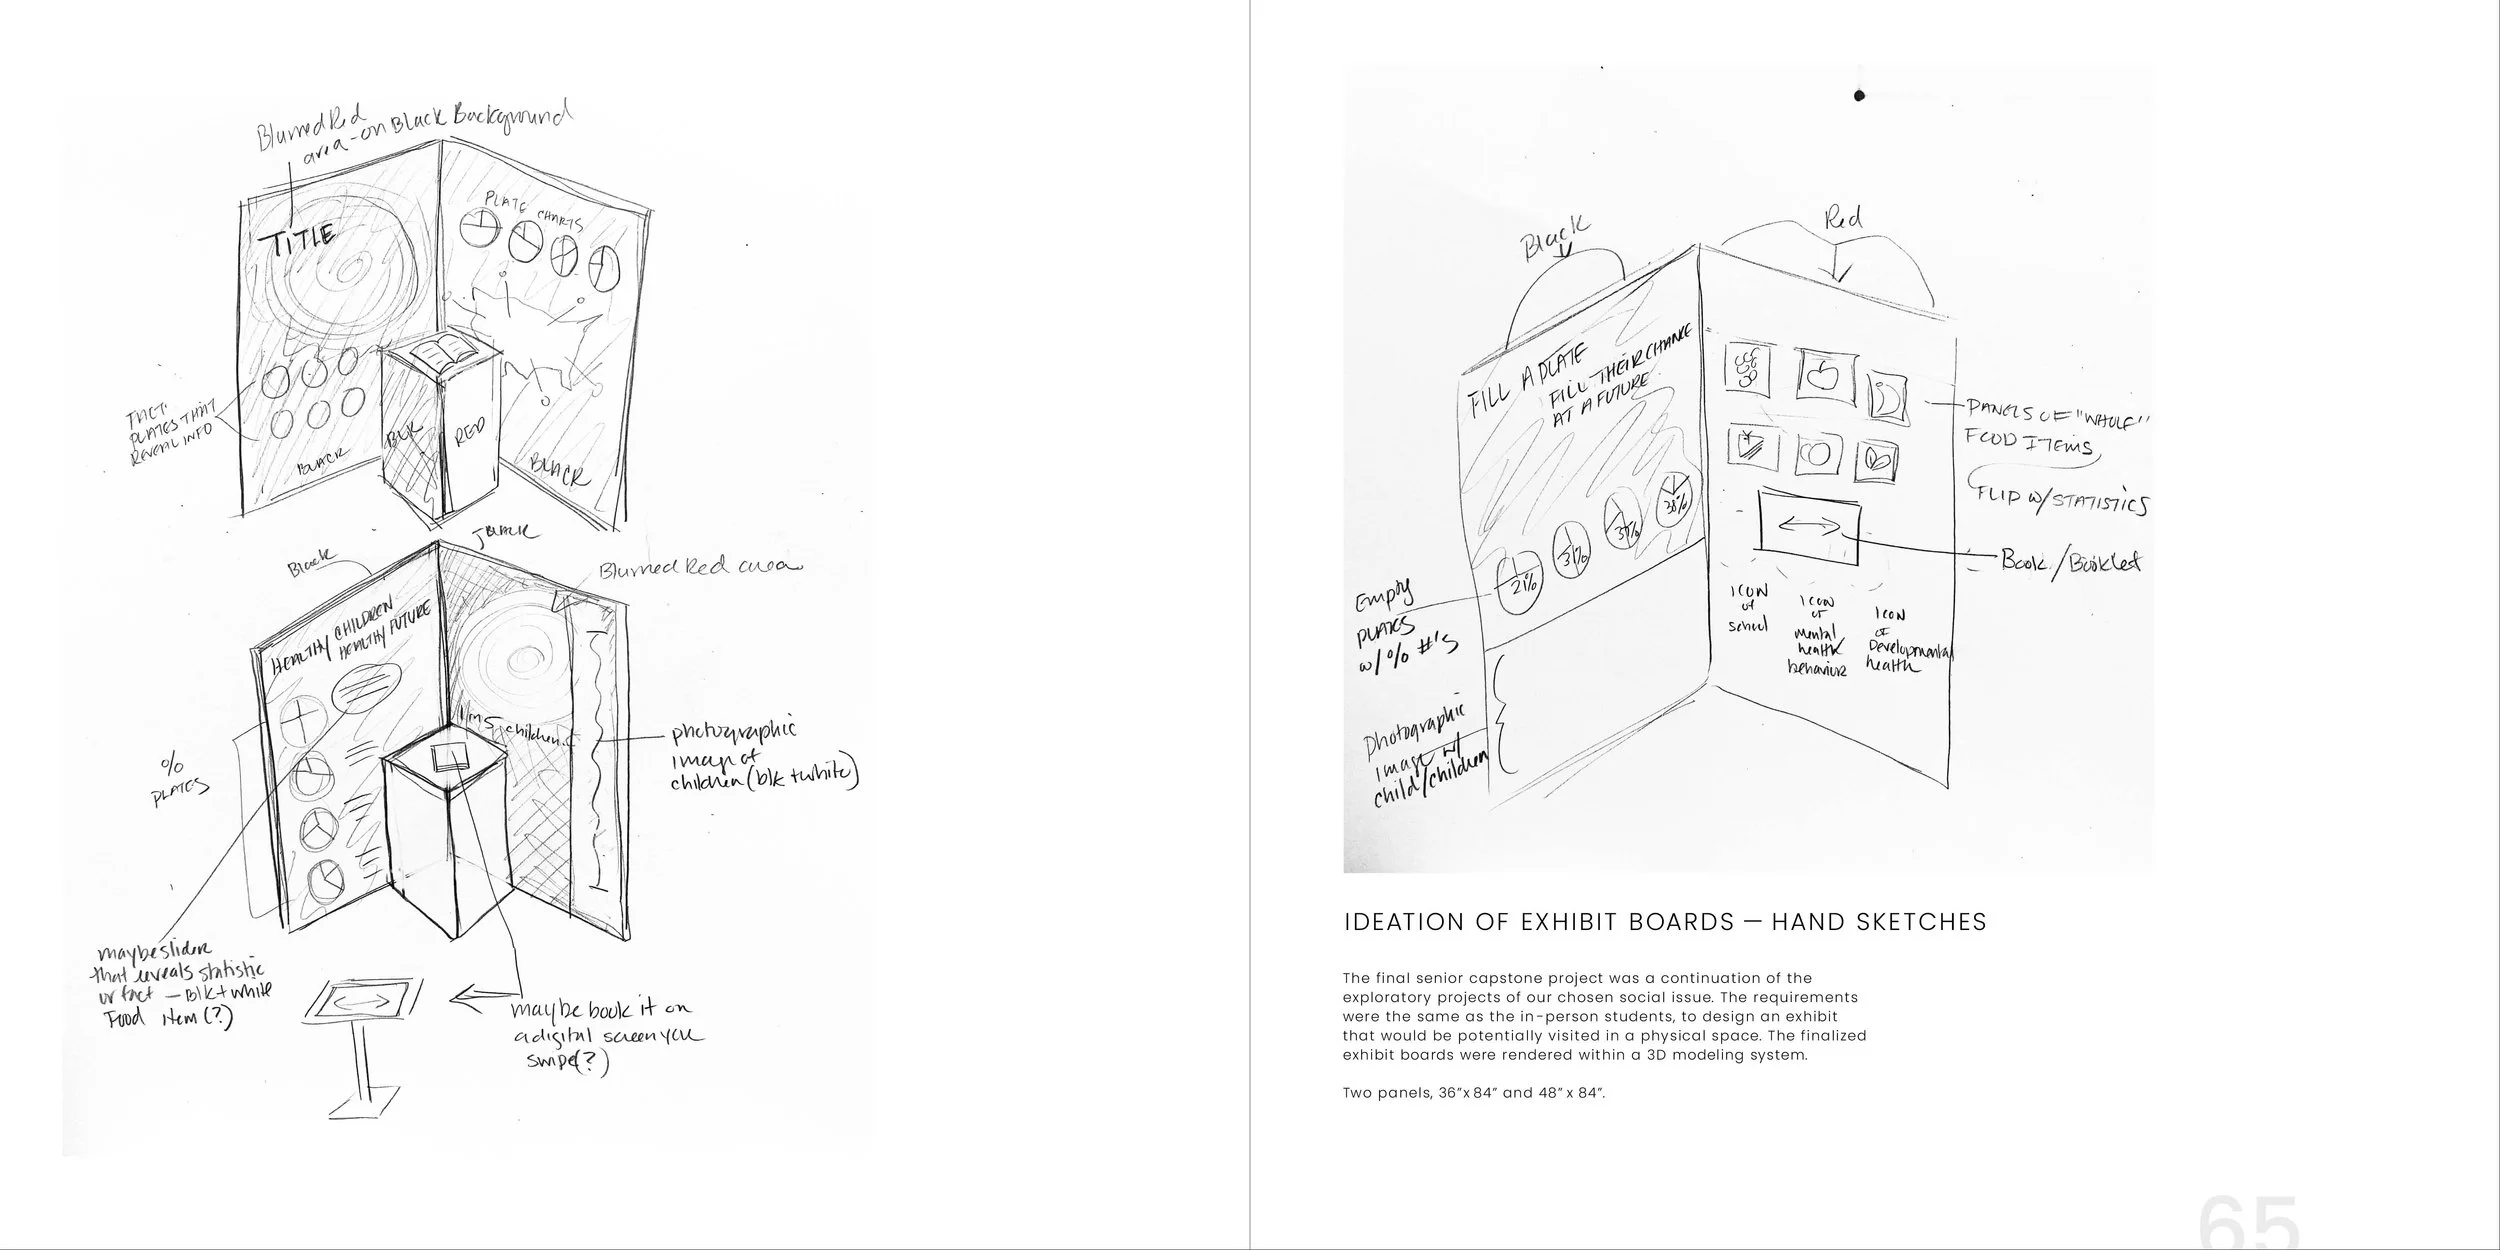 Blurred Red
area - on Black Background
TITLE
PLATE CHARTS
FACT
PLATES THAT
REVEAL INFO
BLACK
BLK
RED
BLACK
Black
BLACK
Blurred Red area
HEALTHY CHILDREN
HEALTHY FUTURE
1 in 5 children
%
PLATES
photographic
image of
children (blk + white)
maybe slider
that reveals statistic
or fact — Blk + white
Food item (?)
maybe book it on
a digital screen you
swipe (?)
Black
Red
FILL A PLATE
FILL THEIR CHANCE
AT A FUTURE
21%
31%
38%
Empty
PLATES
w/ % #'S
Photographic
image w/
child/children
PANELS OF "WHOLE"
FOOD ITEMS
FLIP W/ STATISTICS
Book / Booklet
ICON
of
school
ICON
of
mental
health
behavior
ICON
of
Developmental
health
IDEATION OF EXHIBIT BOARDS — HAND SKETCHES
The final senior capstone project was a continuation of the
exploratory projects of our chosen social issue. The requirements
were the same as the in-person students, to design an exhibit
that would be potentially visited in a physical space. The finalized
exhibit boards were rendered within a 3D modeling system.
Two panels, 36” x 84” and 48” x 84”.
65